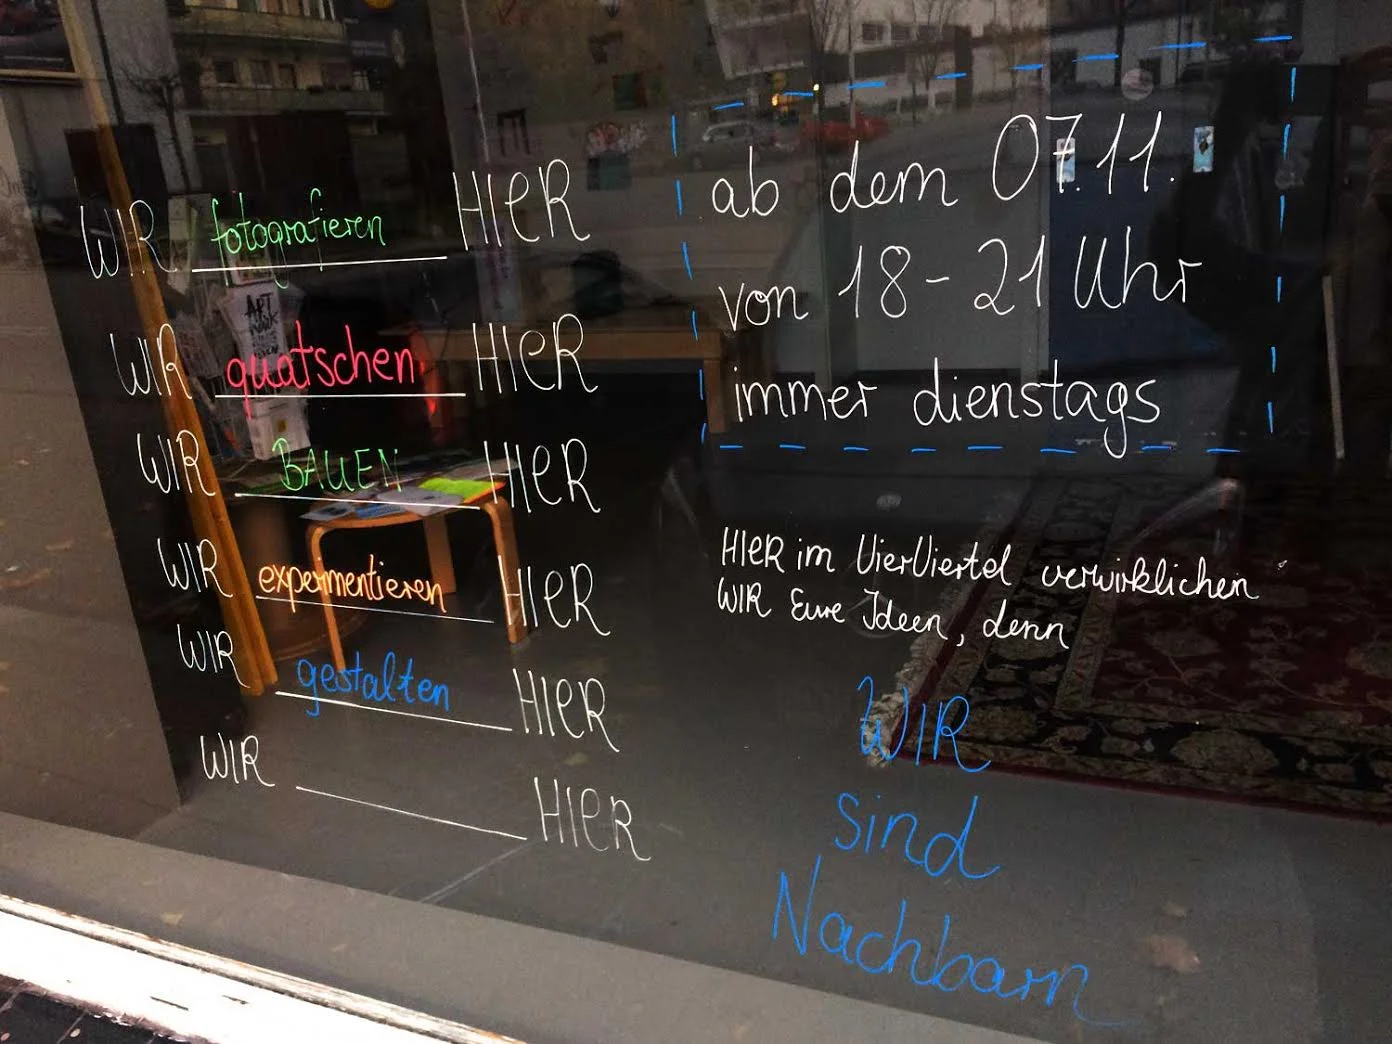 WIR fotografieren HIER
WIR quatschen HIER
WIR BAUEN HIER
WIR expermentieren HIER
WIR gestalten HIER
WIR HIER
ab dem 07.11.
von 18-21 Uhr
immer dienstags
HIER im VierViertel verwirklichen
WIR Eure Ideen, denn
WIR
sind
Nachbarn